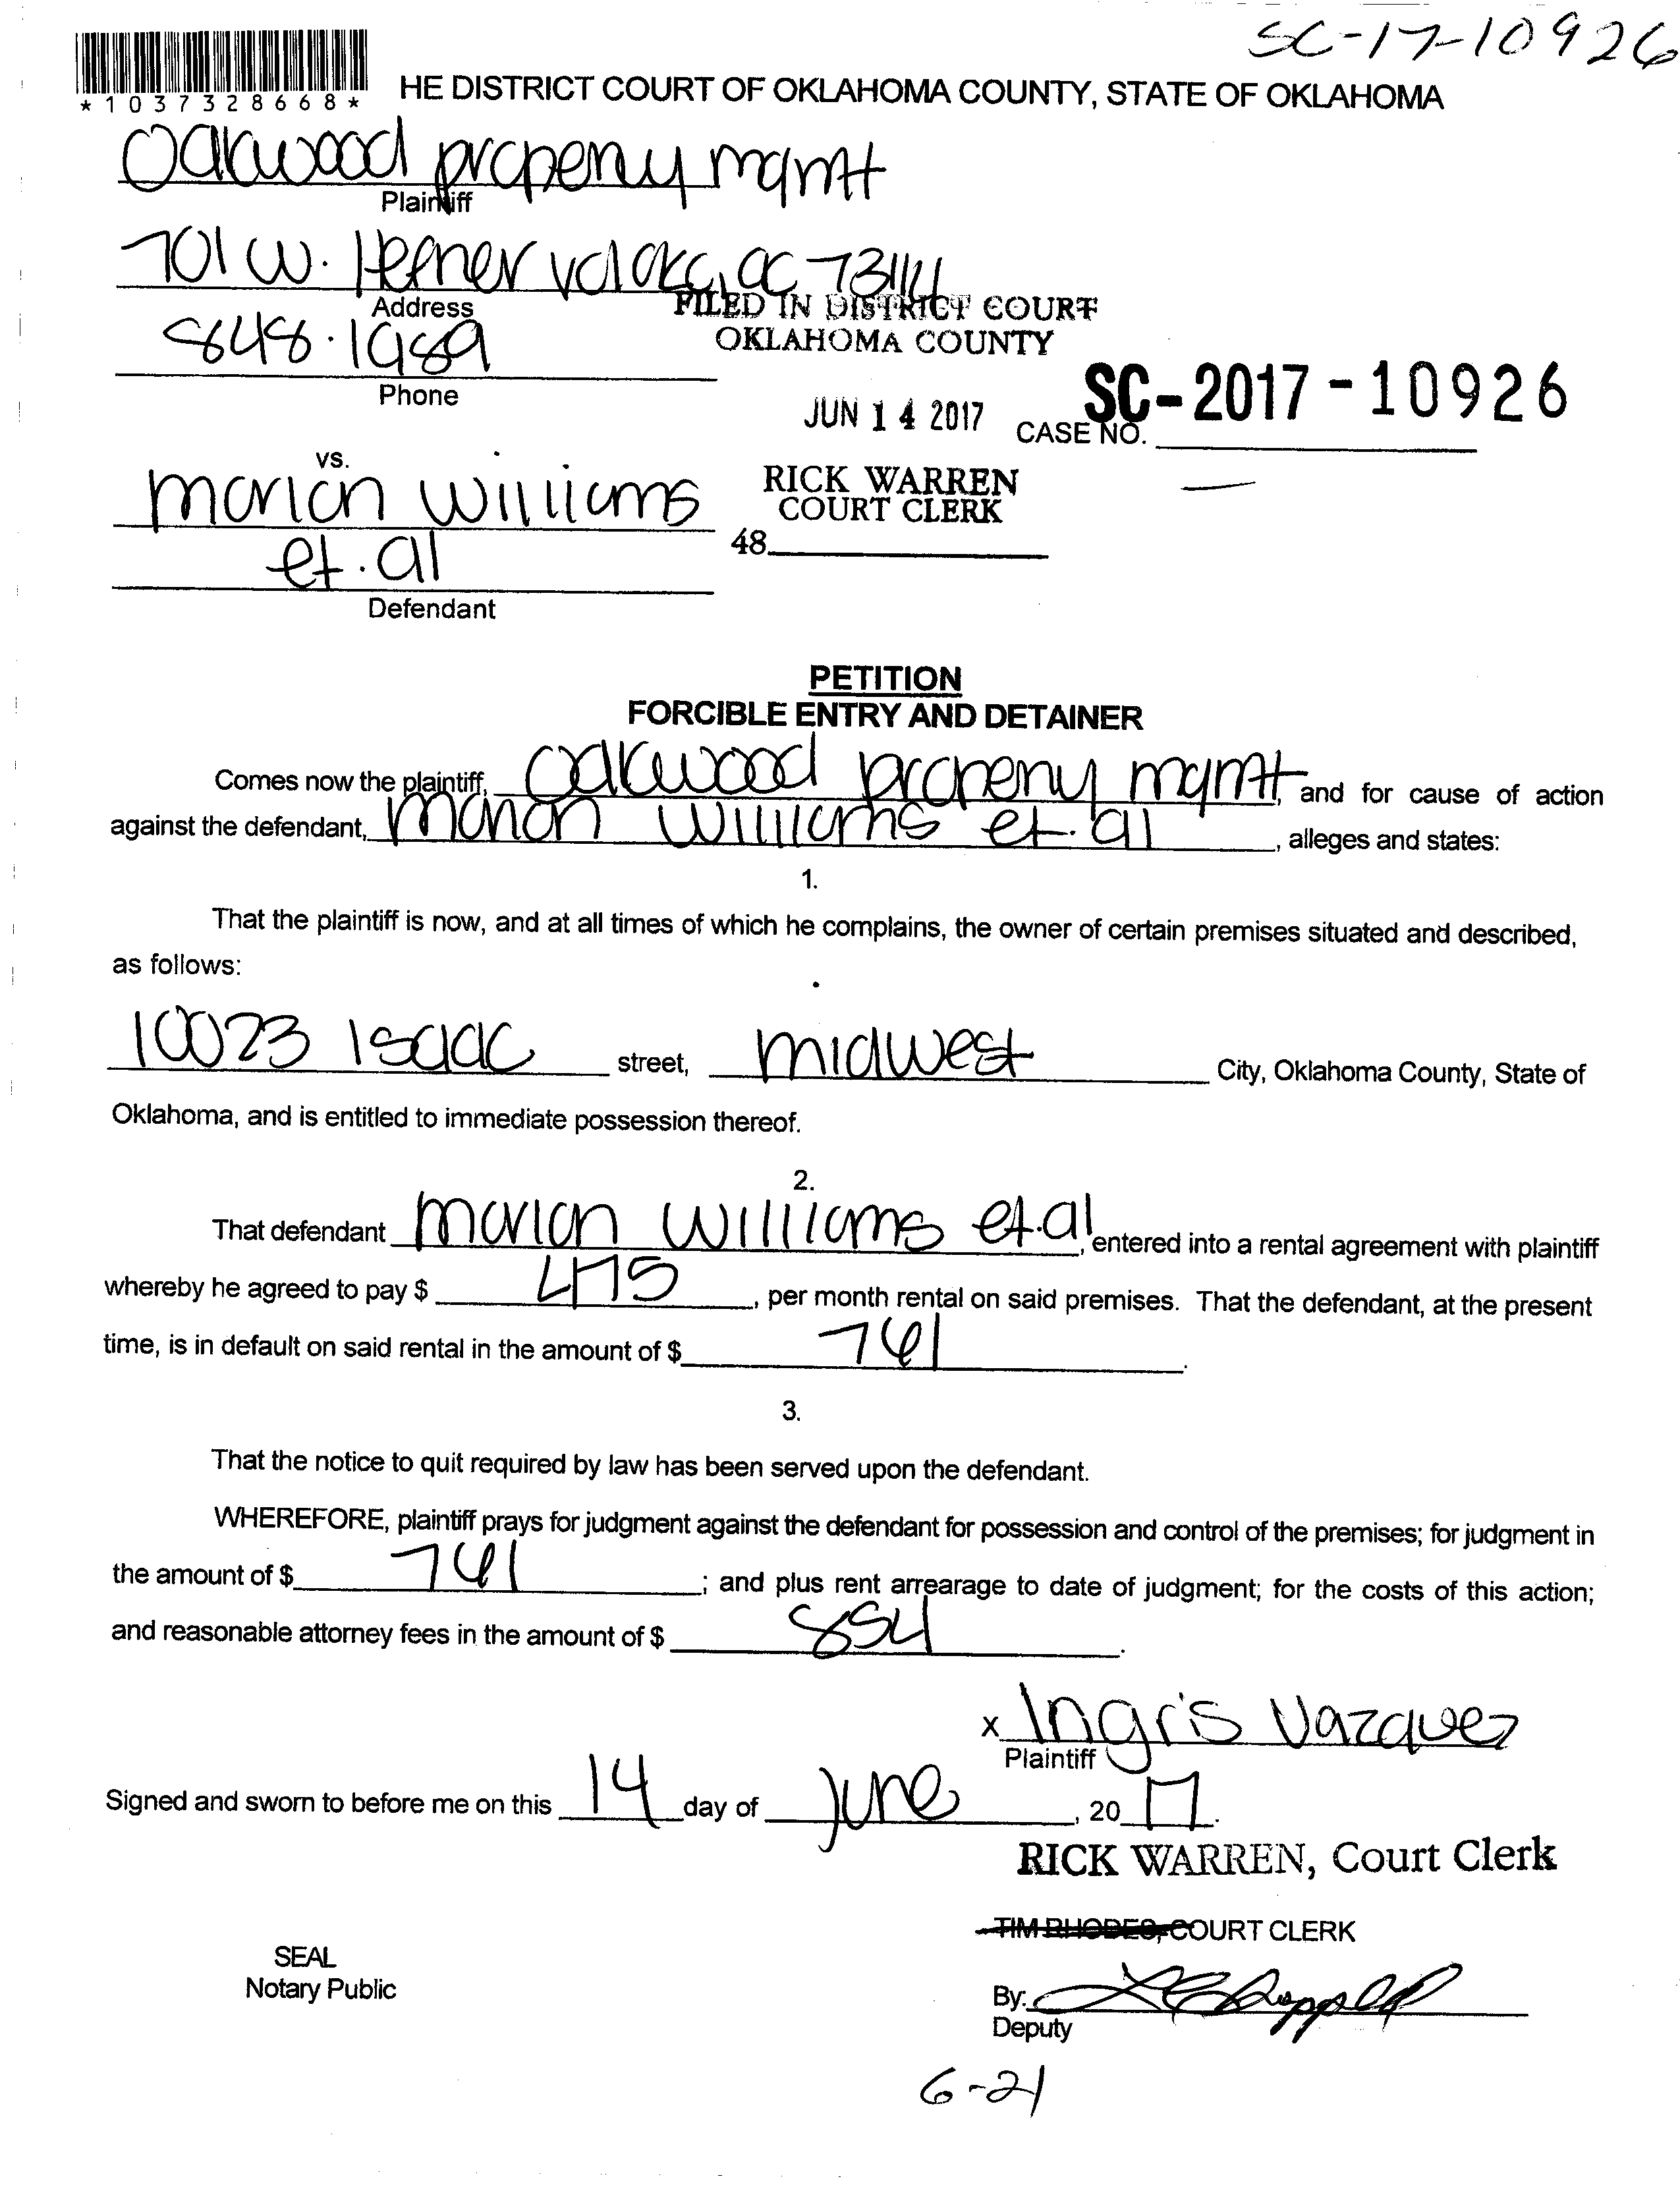 SC-17-10926
*1037328668*
HE DISTRICT COURT OF OKLAHOMA COUNTY, STATE OF OKLAHOMA
Oakwood property mgmt
Plaintiff
701 W. Hefner rd OKC, OK 73114
Address
FILED IN DISTRICT COURT
OKLAHOMA COUNTY
848.1989
Phone
JUN 14 2017
CASE NO. SC-2017-10926
vs.
marion williams
RICK WARREN
COURT CLERK
48
et.al
Defendant
PETITION
FORCIBLE ENTRY AND DETAINER
Comes now the plaintiff, Oakwood property mgmt, and for cause of action
against the defendant, Marion Williams et.al, alleges and states:
1.
That the plaintiff is now, and at all times of which he complains, the owner of certain premises situated and described,
as follows:
10023 Isaac street, midwest City, Oklahoma County, State of
Oklahoma, and is entitled to immediate possession thereof.
2.
That defendant marion williams et.al, entered into a rental agreement with plaintiff
whereby he agreed to pay $ 475, per month rental on said premises. That the defendant, at the present
time, is in default on said rental in the amount of $ 761.
3.
That the notice to quit required by law has been served upon the defendant.
WHEREFORE, plaintiff prays for judgment against the defendant for possession and control of the premises; for judgment in
the amount of $ 761; and plus rent arrearage to date of judgment; for the costs of this action;
and reasonable attorney fees in the amount of $ 854.
x Ingris Vazquez
Plaintiff
Signed and sworn to before me on this 14 day of june, 20 17.
RICK WARREN, Court Clerk
TIM RHODES, COURT CLERK
SEAL
Notary Public
By:
Deputy
6-21